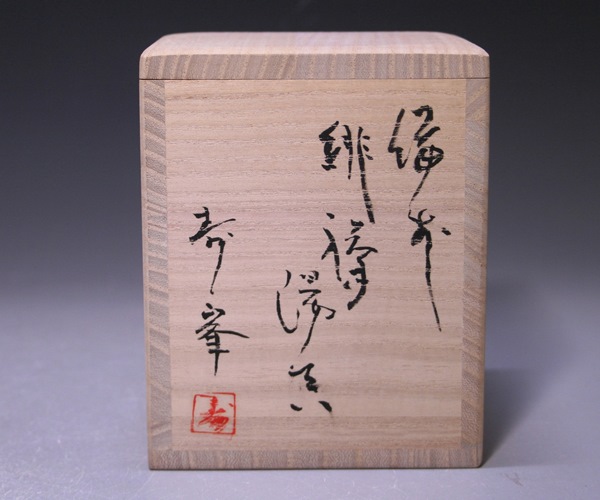 備前
緋襷湯呑
寿峯
寿